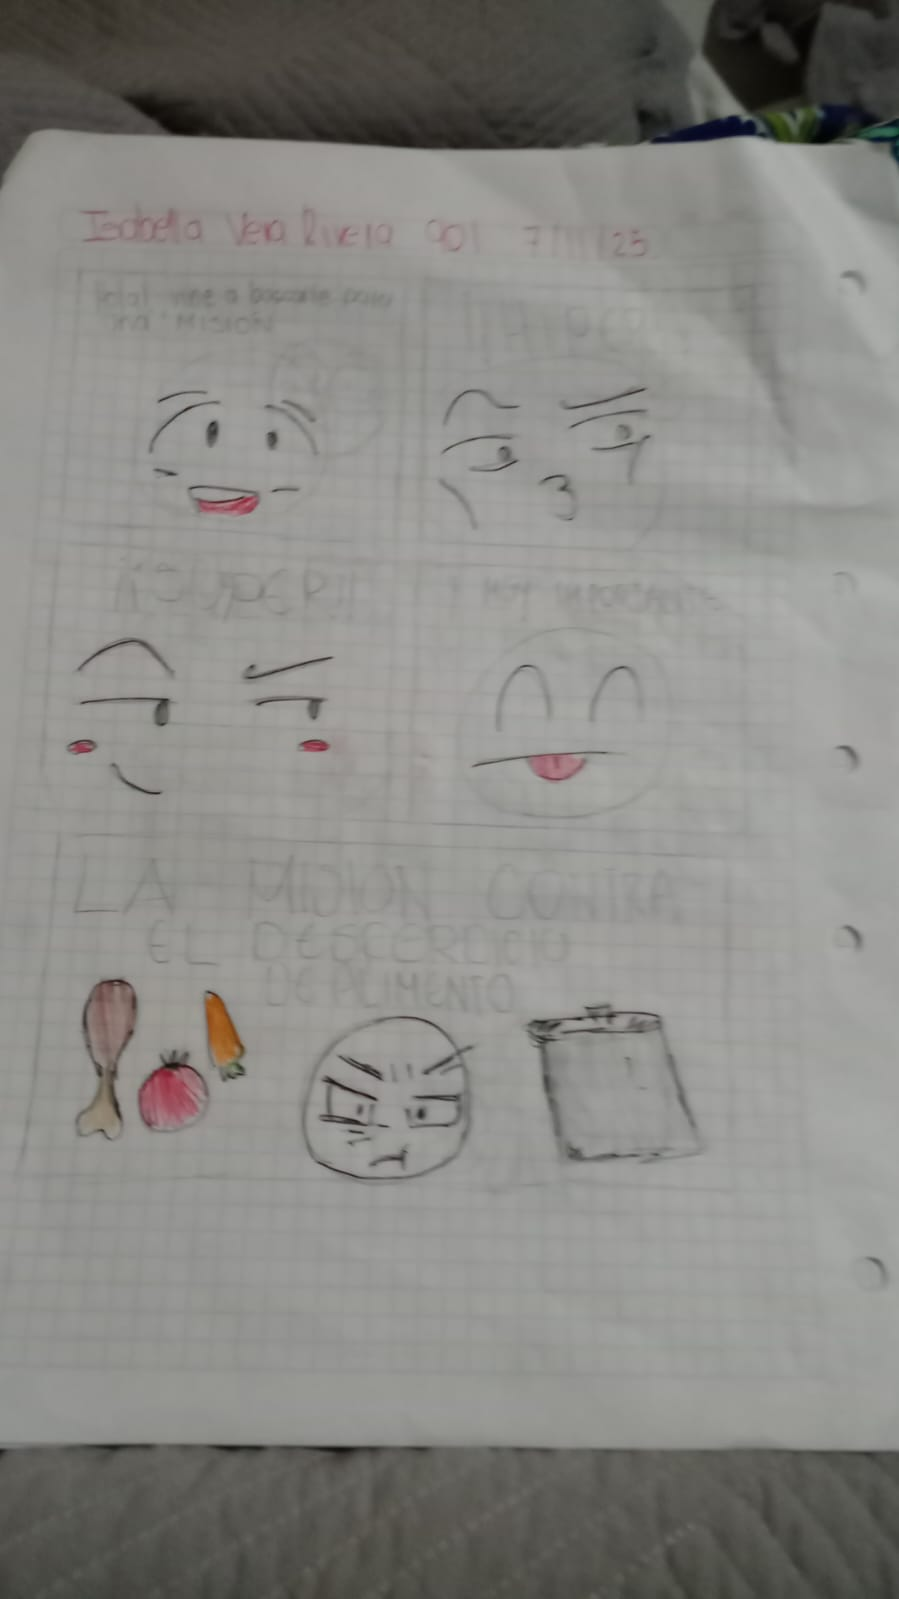 Isabella Vera Rivera 901 7/11/25
vine a buscarte para
una MISION
¡¡SUPER!!
Y MUY IMPORTANTE
LA MIDION CONTRA
EL DESCERDICIO
DE ALIMENTO